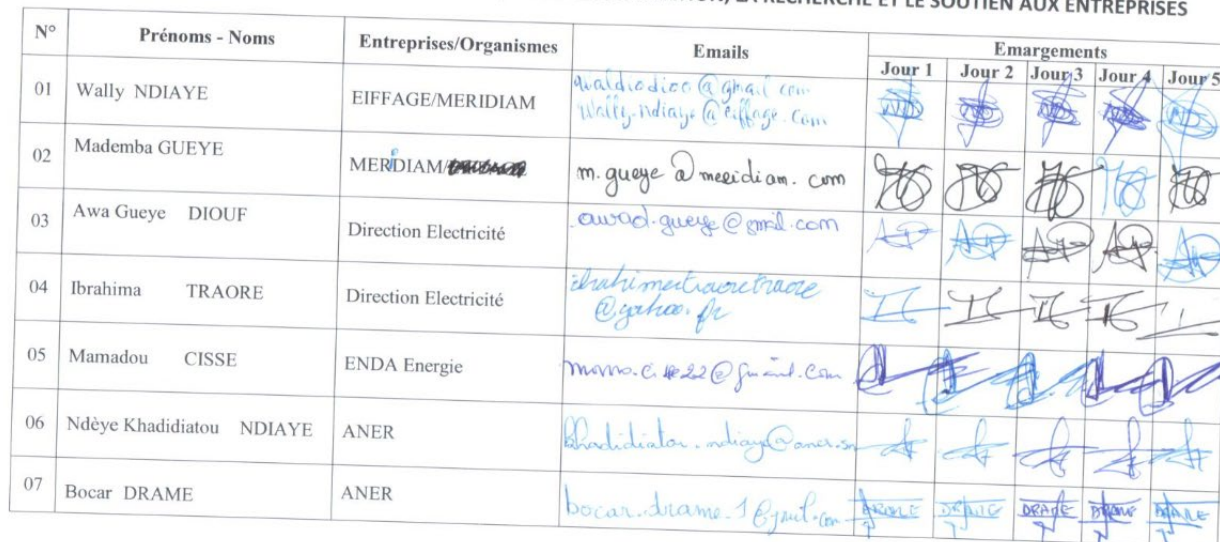 LA RECHERCHE ET LE SOUTIEN AUX ENTREPRISES
N° Prénoms - Noms Entreprises/Organismes Emails Emargements
Jour 1 Jour 2 Jour 3 Jour 4 Jour 5
01 Wally NDIAYE EIFFAGE/MERIDIAM
Wally.ndiaye@eiffage.com
02 Mademba GUEYE MERIDIAM/ m.gueye@meridiam.com
03 Awa Gueye DIOUF Direction Electricité awad.gueye@gmail.com
04 Ibrahima TRAORE Direction Electricité ibrahimatraoretraore
@yahoo.fr
05 Mamadou CISSE ENDA Energie
06 Ndèye Khadidiatou NDIAYE ANER khadidiatou.ndiaye@aner.sn
07 Bocar DRAME ANER bocar.drame.1@gmail.com DRAME DRAME DRAME DRAME DRAME